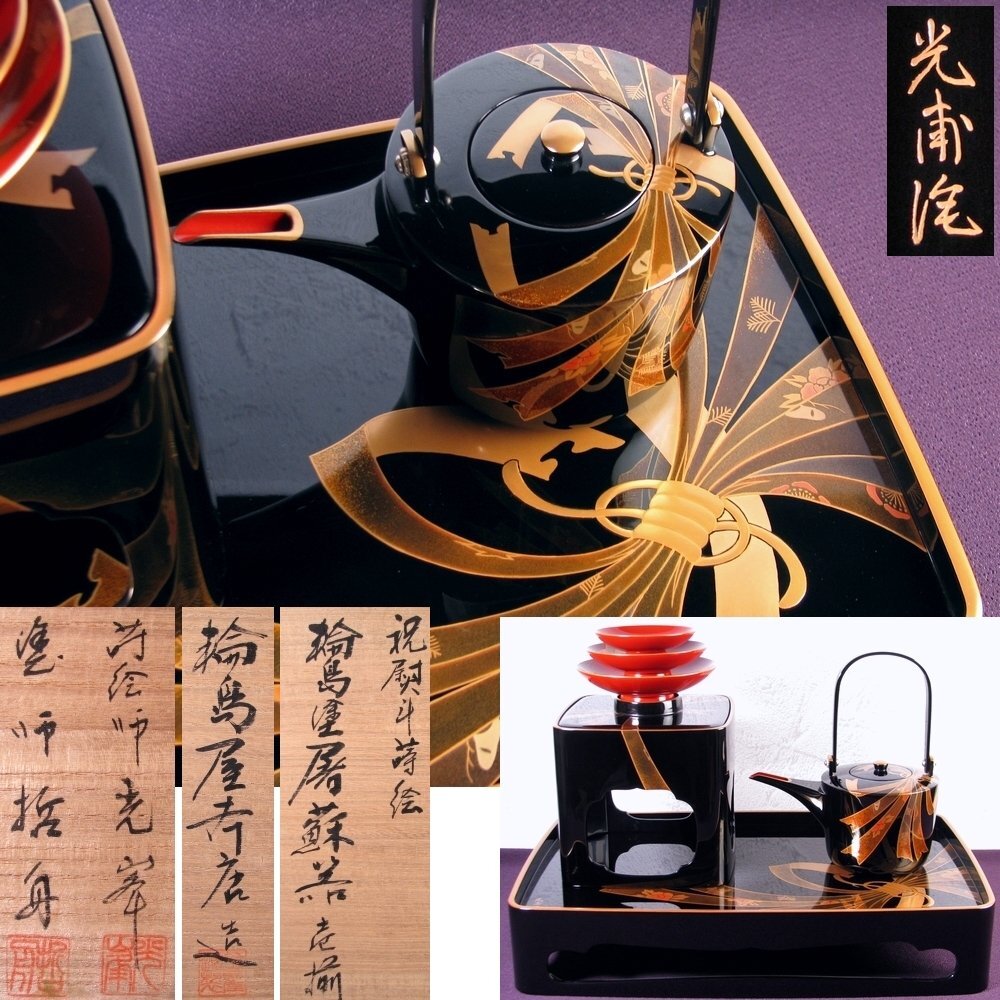 光甫洸
祝熨斗蒔絵
輪島塗屠蘇器 壱揃
輪島屋本店造
蒔絵師光峯
塗師哲舟